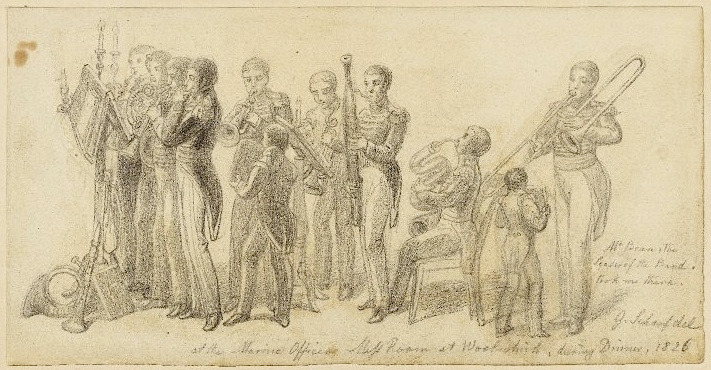 Mr. Pecan, the
Leader of the Band.
took me there.
G. Scharf del
at the Marine Officers Mess Room at Woolwich, during Dinner, 1826